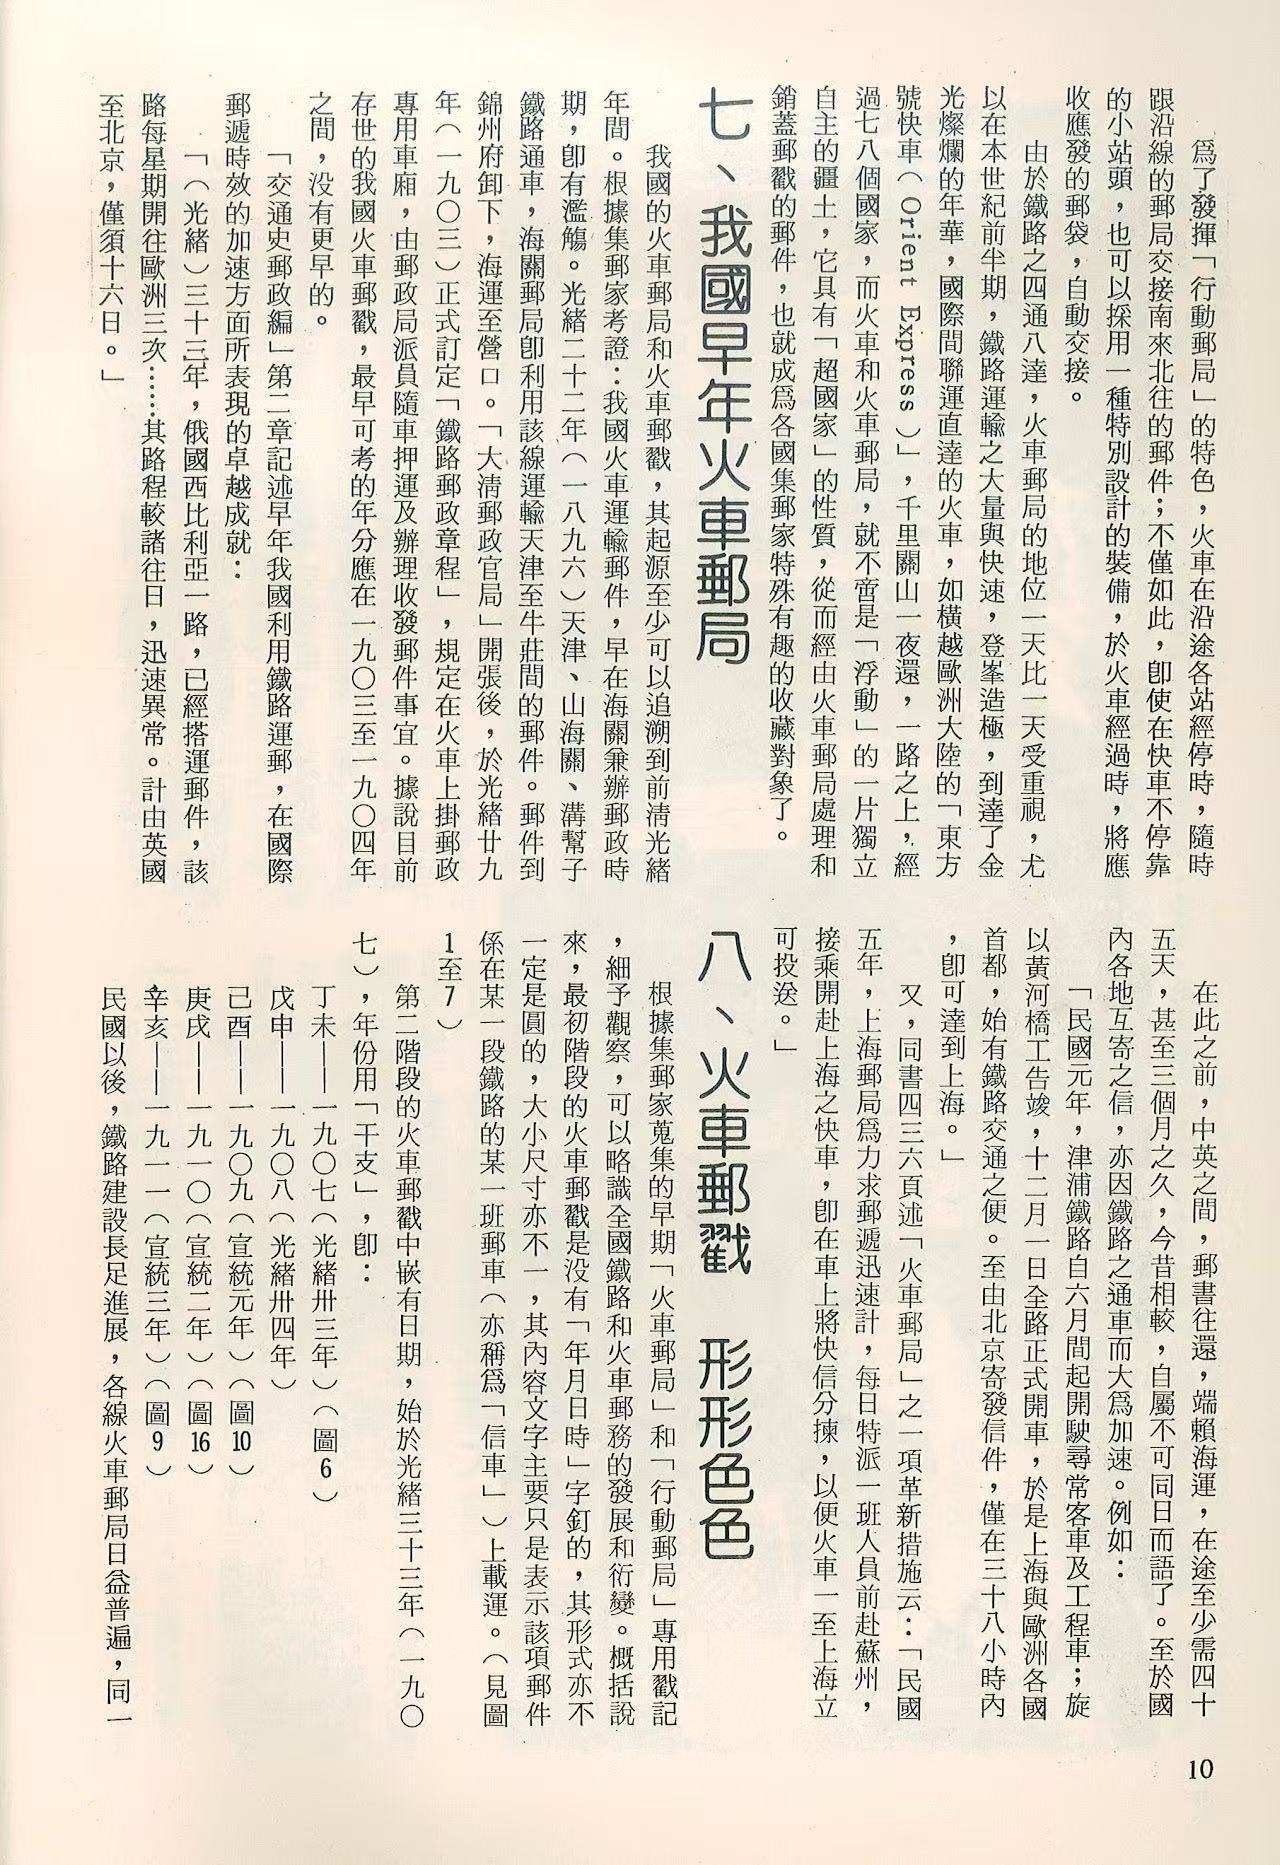 爲了發揮「行動郵局」的特色，火車在沿途各站經停時，隨時
跟沿線的郵局交接南來北往的郵件；不僅如此，卽使在快車不停靠
的小站頭，也可以採用一種特別設計的裝備，於火車經過時，將應
收應發的郵袋，自動交接。
由於鐵路之四通八達，火車郵局的地位一天比一天受重視，尤
以在本世紀前半期，鐵路運輸之大量與快速，登峯造極，到達了金
光燦爛的年華，國際間聯運直達的火車，如橫越歐洲大陸的「東方
號快車（Orient Express）」，千里關山一夜還，一路之上，經
過七八個國家，而火車和火車郵局，就不啻是「浮動」的一片獨立
自主的疆土，它具有「超國家」的性質，從而經由火車郵局處理和
銷蓋郵戳的郵件，也就成爲各國集郵家特殊有趣的收藏對象了。
七、我國早年火車郵局
我國的火車郵局和火車郵戳，其起源至少可以追溯到前淸光緒
年間。根據集郵家考證：我國火車運輸郵件，早在海關兼辦郵政時
期，卽有濫觴。光緒二十二年（一八九六）天津、山海關、溝幫子
鐵路通車，海關郵局卽利用該線運輸天津至牛莊間的郵件。郵件到
錦州府卸下，海運至營口。「大淸郵政官局」開張後，於光緒廿九
年（一九〇三）正式訂定「鐵路郵政章程」，規定在火車上掛郵政
專用車廂，由郵政局派員隨車押運及辦理收發郵件事宜。據說目前
存世的我國火車郵戳，最早可考的年分應在一九〇三至一九〇四年
之間，没有更早的。
「交通史郵政編」第二章記述早年我國利用鐵路運郵，在國際
郵遞時效的加速方面所表現的卓越成就：
「（光緒）三十三年，俄國西比利亞一路，已經搭運郵件，該
路每星期開往歐洲三次……其路程較諸往日，迅速異常。計由英國
至北京，僅須十六日。」
在此之前，中英之間，郵書往還，端賴海運，在途至少需四十
五天，甚至三個月之久，今昔相較，自屬不可同日而語了。至於國
內各地互寄之信，亦因鐵路之通車而大爲加速。例如：
「民國元年，津浦鐵路自六月間起開駛尋常客車及工程車；旋
以黃河橋工告竣，十二月一日全路正式開車，於是上海與歐洲各國
首都，始有鐵路交通之便。至由北京寄發信件，僅在三十八小時內
，卽可達到上海。」
又，同書四三六頁述「火車郵局」之一項革新措施云：「民國
五年，上海郵局爲力求郵遞迅速計，每日特派一班人員前赴蘇州，
接乘開赴上海之快車，卽在車上將快信分揀，以便火車一至上海立
可投送。」
八、火車郵戳　形形色色
根據集郵家蒐集的早期「火車郵局」和「行動郵局」專用戳記
，細予觀察，可以略識全國鐵路和火車郵務的發展和衍變。概括說
來，最初階段的火車郵戳是没有「年月日時」字釘的，其形式亦不
一定是圓的，大小尺寸亦不一，其內容文字主要只是表示該項郵件
係在某一段鐵路的某一班郵車（亦稱爲「信車」）上載運。（見圖
1至7）
第二階段的火車郵戳中嵌有日期，始於光緒三十三年（一九〇
七），年份用「干支」，卽：
丁未——一九〇七（光緒卅三年）（圖6）
戊申——一九〇八（光緒卅四年）
己酉——一九〇九（宣統元年）（圖10）
庚戌——一九一〇（宣統二年）（圖16）
辛亥——一九一一（宣統三年）（圖9）
民國以後，鐵路建設長足進展，各線火車郵局日益普遍，同一
10